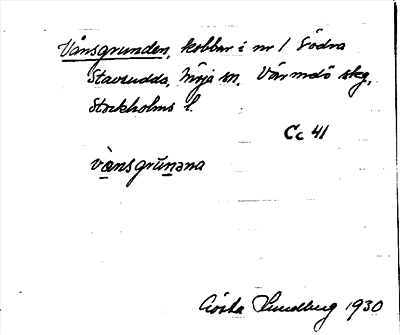 Vånsgrunden, kobbar i nr 1 Södra
Stavsudda, Möja sn, Värmdö skg,
Stockholms l.
Cc 41
vånsgrunəna
Gösta Lundberg 1930